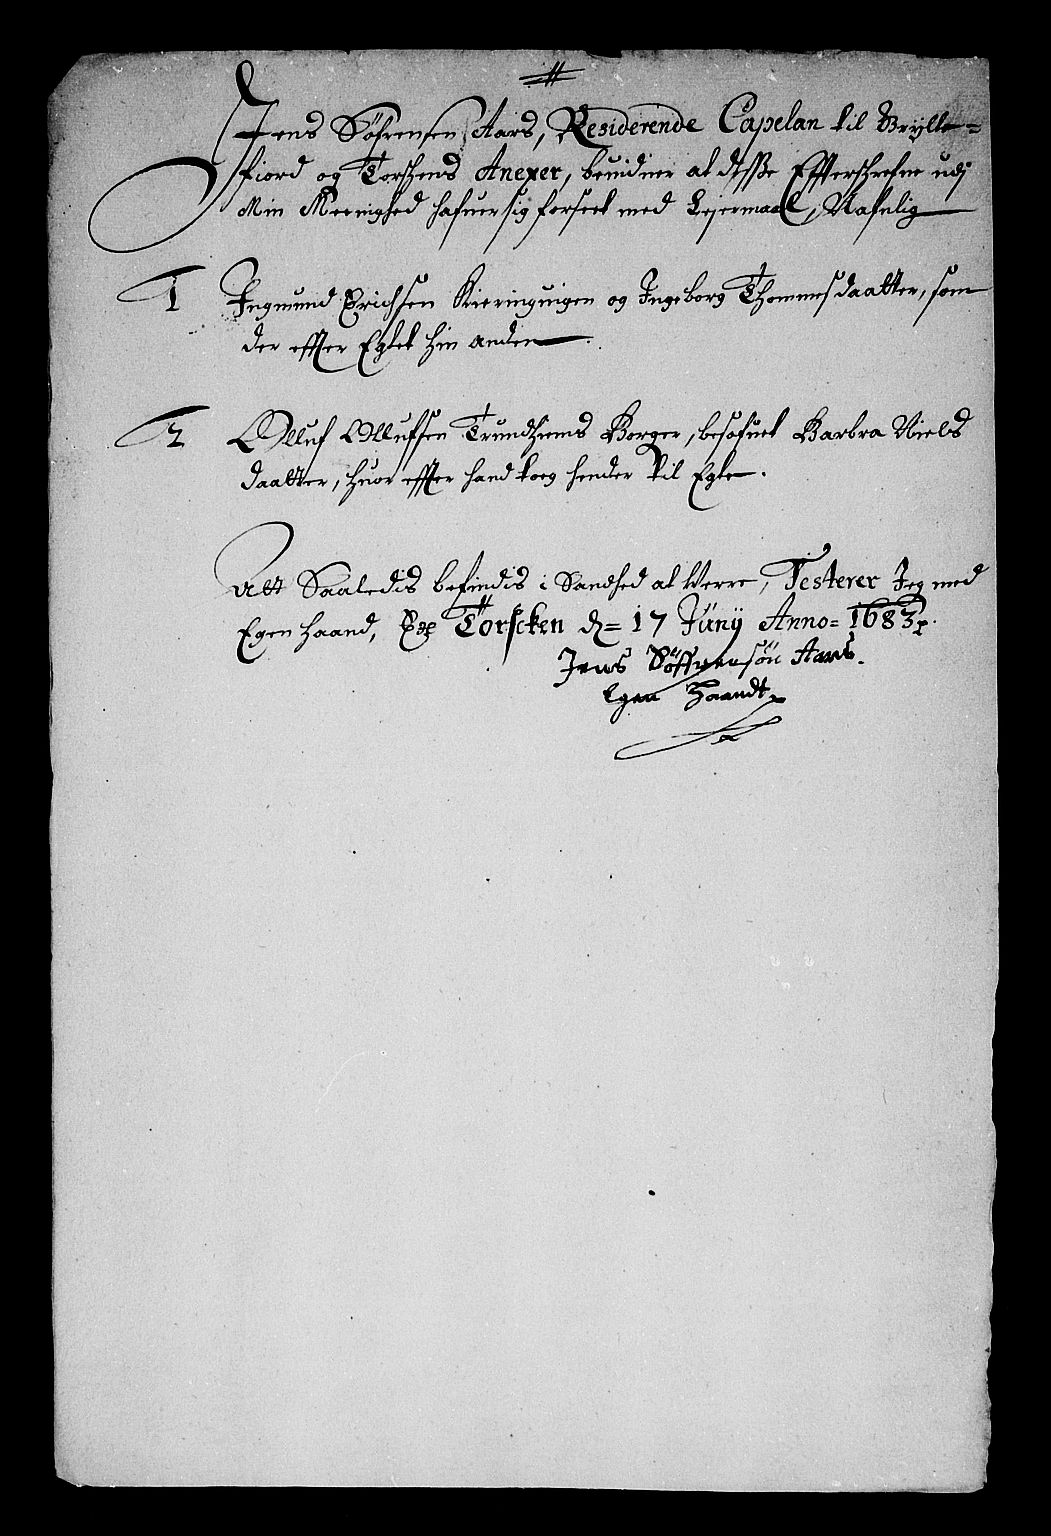 Jens Söfrensen Aars, Residerende Capelan til Brylle=
fiord og Torskens Anexer, beuidner at desse Effterschrefne udj
Min Meenighed hafuer sig forseet med Lejermaal, Nafnlig
1 Ingmund Erichsen Kieringuigen og Ingeborg Thommesdaatter, som
der effter Egtet hin anden.
2 Olluf Ollufsen Trundhiems Borger, besofuet Barbra Niels
daatter, huor effter hand toeg hender til Egte.
Att Saaledis befindis i Sandhed at Verre, Testerer Jeg med
Egen Haand, Exp Torscken d= 17 Junij Anno= 1683
Jens Söffrensön Aars.
Egen Haandt